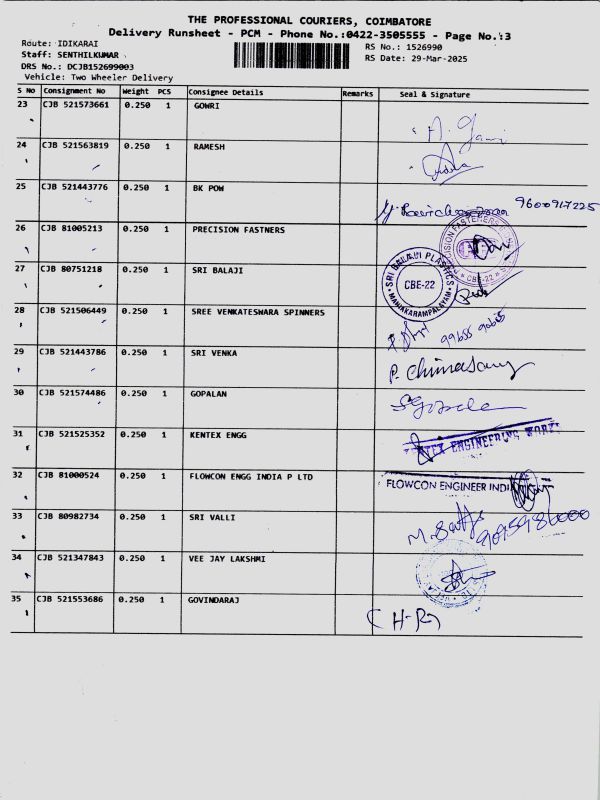 THE PROFESSIONAL COURIERS, COIMBATORE
Delivery Runsheet - PCM - Phone No.:0422-3505555 - Page No.:3
Route: IDIKARAI
RS No.: 1526990
Staff: SENTHILKUMAR
RS Date: 29-Mar-2025
DRS No.: DCJB152699003
Vehicle: Two Wheeler Delivery
S No Consignment No Weight PCS Consignee Details Remarks Seal & Signature
23 CJB 521573661 0.250 1 GOWRI
24 CJB 521563819 0.250 1 RAMESH
25 CJB 521443776 0.250 1 BK POW 9600917225
26 CJB 81005213 0.250 1 PRECISION FASTNERS PRECISION FASTENERS CBE-22
27 CJB 80751218 0.250 1 SRI BALAJI SRI BALAJI PLASTICS CBE-22 MANIAKARAMPALAYAM
28 CJB 521506449 0.250 1 SREE VENKATESWARA SPINNERS
29 CJB 521443786 0.250 1 SRI VENKA P. Chinnasamy
30 CJB 521574486 0.250 1 GOPALAN
31 CJB 521525352 0.250 1 KENTEX ENGG ENGINEERING WORKS
32 CJB 81000524 0.250 1 FLOWCON ENGG INDIA P LTD FLOWCON ENGINEER INDI
33 CJB 80982734 0.250 1 SRI VALLI
34 CJB 521347843 0.250 1 VEE JAY LAKSHMI
35 CJB 521553686 0.250 1 GOVINDARAJ